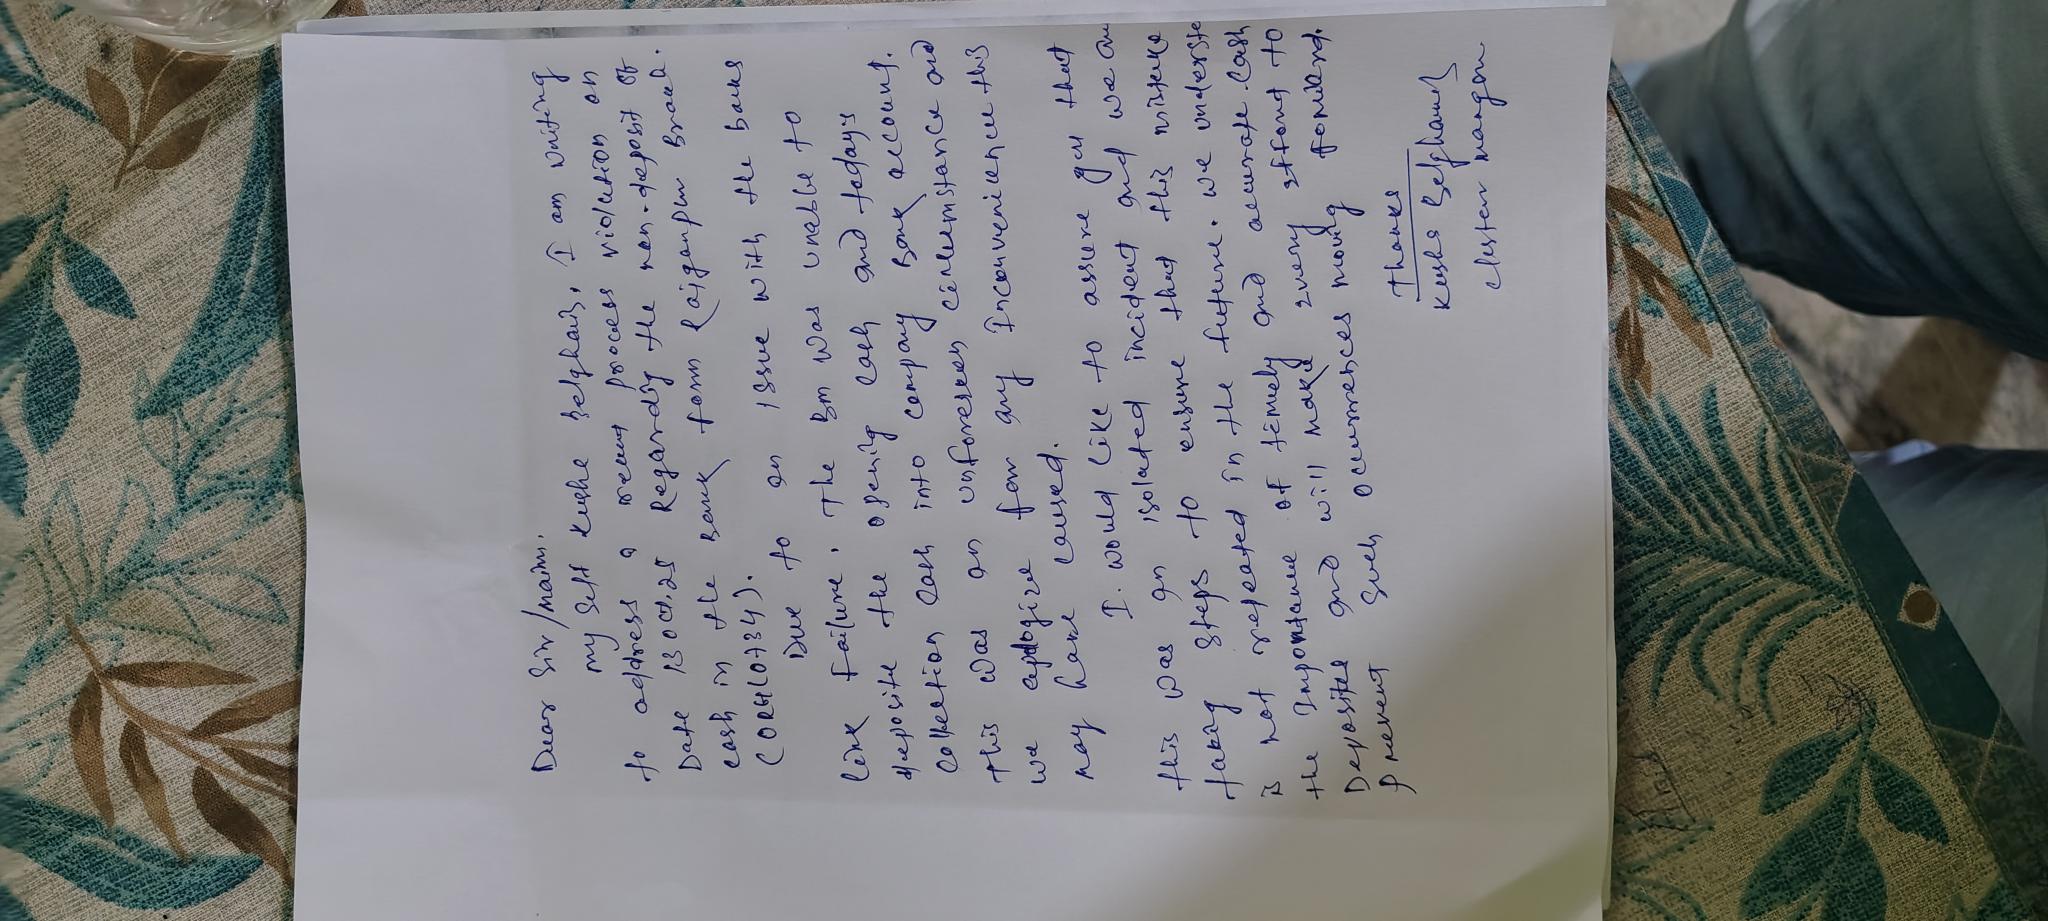 Dear Sir/maim.
my self Kushe Belghari, I am writing
to address a recent process violation on
Date 13 Oct, 25 Regarding the non-deposit of
cash in the Bank form Raiganpur Branch.
(ORH(0734).
Due to an issue with the banks
link failure. The Bm was unable to
deposite the opening cash and todays
Collection cash into company Bank account.
this was an unforeseen circumstance and
we apologize for any Inconvenience this
may have caused.
I. would like to assure you that
this was an isolated incident and we are
taking steps to ensure that this mistake
is not repeated in the future. we understa
the Importance of timely and accurate cash
Deposites and will make every effort to
prevent such occurrences moving forward.
Thanks
Kushe Belghari
cluster manager